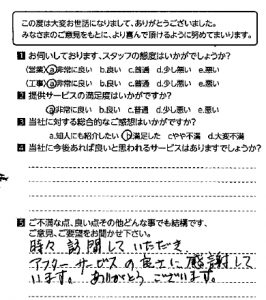 この度は大変お世話になりまして、ありがとうございました。
みなさまのご意見をもとに、より喜んで頂けるように努めてまいります。
1 お伺いしております、スタッフの態度はいかがでしょうか?
(営業) a非常に良い b.良い c.普通 d.少し悪い e.悪い
(工事) a非常に良い b.良い c.普通 d.少し悪い e.悪い
2 提供サービスの満足度はいかがですか?
a非常に良い b.良い c.普通 d.少し悪い e.悪い
3 当社に対する総合的なご感想はいかがですか?
a.知人にも紹介したい b満足した cやや不満 d.大変不満
4 当社に今後あれば良いと思われるサービスはありますでしょうか?
5 ご不満な点、良い点その他どんな事でも結構です、
ご意見、ご要望をお聞かせ下さい。
時々 訪問して いただき
アフターサービスの良さに 感謝して
います。 ありがとう ございます。